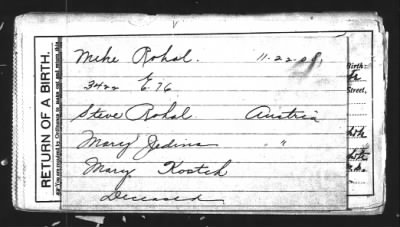 RETURN OF A BIRTH.
Mike Rohal. 11.22.08,
3422 E. 76
Steve Rohal. Austria
Mary Jedins " "
Mary Kostch
Deceased
Birth:
Street,